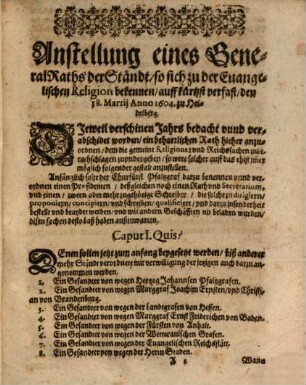 Anstellung eines Gene-
ralRaths der Ständt/ so sich zu der Euange-
lischen Religion bekennen/ auff kürtzst verfast/ den
18. Martij Anno 1604. zu Hei-
delberg.
Jeweil verschinen Jahrs bedacht vund ver-
abschidet worden/ ein beharlichen Rath hieher anzu
ordnen/ dem die gemeine Religions vnd Reichssachen
zu
möglich folgender gestalt anzustellen.
Anfänglich solt der Churfürstl. Pfaltzgraf darzu benennen vnnd ver-
ordnen einen Presidenten/ deßgleichen noch einen Rath vnd Secretarium,
vnd einen/ zween aber mehr zugehörige Schreiber/ die solches dirigiern/
proponiern/ concipiern/ vnd schreiben/ qualificiert/ vnd darzu insonderheit
bestellt vnd beaydet werden/ vnd mit andern Geschäfften nit beladen wurden/
disen sachen desto baß haben außzuwarten.
Caput I. Quis?
Denen sollen jetzt zum anfang beygesetzt werden/ biß anderer
mehr Ständt verordnete mit verwilligung der jetzigen auch darzu an-
genommen werden.
1. Ein Gesandter von wegen Hertzog Johannsen Pfaltzgrafen.
2. Ein Gesandter von wegen Marggraf Joachim Ernsten/ vnd Christi-
an von Brandenberg.
3. Ein Gesandter von wegen der Landtgrafen von Hessen.
4. Ein Gesandter von wegen Marggraf Ernst Friderichen von Baden.
5. Ein Gesandter von wegen der Fürsten von Anhalt.
6. Ein Gesandter von wegen der Wetterauischen Grafen.
7. Ein Gesandter von wegen der Euangelischen Reichsstätt.
8. Ein Gesandter von wegen der Herrn Staden.
A 2 Wann